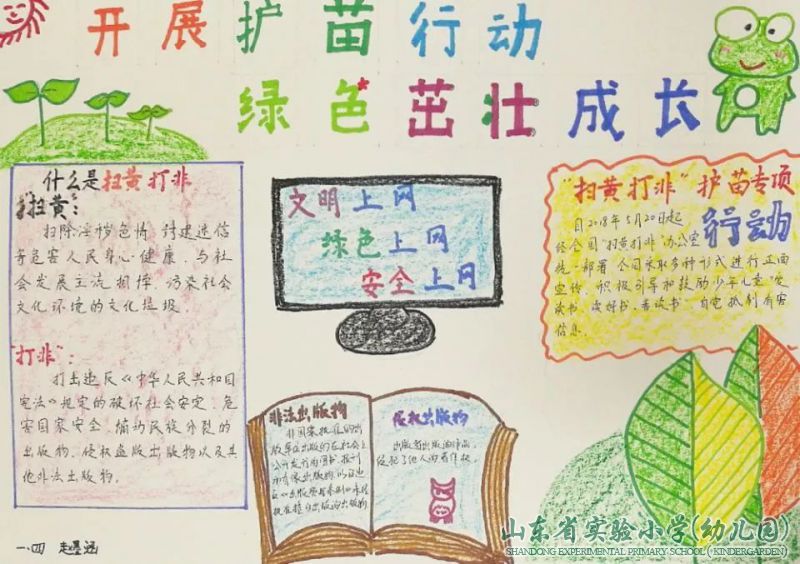 开展护苗行动
绿色茁壮成长
什么是扫黄打非
"扫黄":
扫除淫秽色情、封建迷信
等危害人民身心健康、与社
会发展主流相悖、污染社会
文化环境的文化垃圾.
"打非":
打击违反《中华人民共和国
宪法》规定的破坏社会安定、危
害国家安全、煽动民族分裂的
出版物、侵权盗版出版物以及其
他非法出版物。
文明上网
绿色上网
安全上网
"扫黄打非"护苗专项
行动
自2018年5月20日起
经全国"扫黄打非"办公室
统一部署全国采取多种形式进行正面
宣传、积极引导和鼓励少年儿童"爱
读书、读好书、善读书"自觉抵制有害
信息.
非法出版物
侵权出版物
出版
侵犯了他人的著作权.
一.四 赵墨涵
山东省实验小学(幼儿园)
SHANDONG EXPERIMENTAL PRIMARY SCHOOL ( KINDERGARDEN)